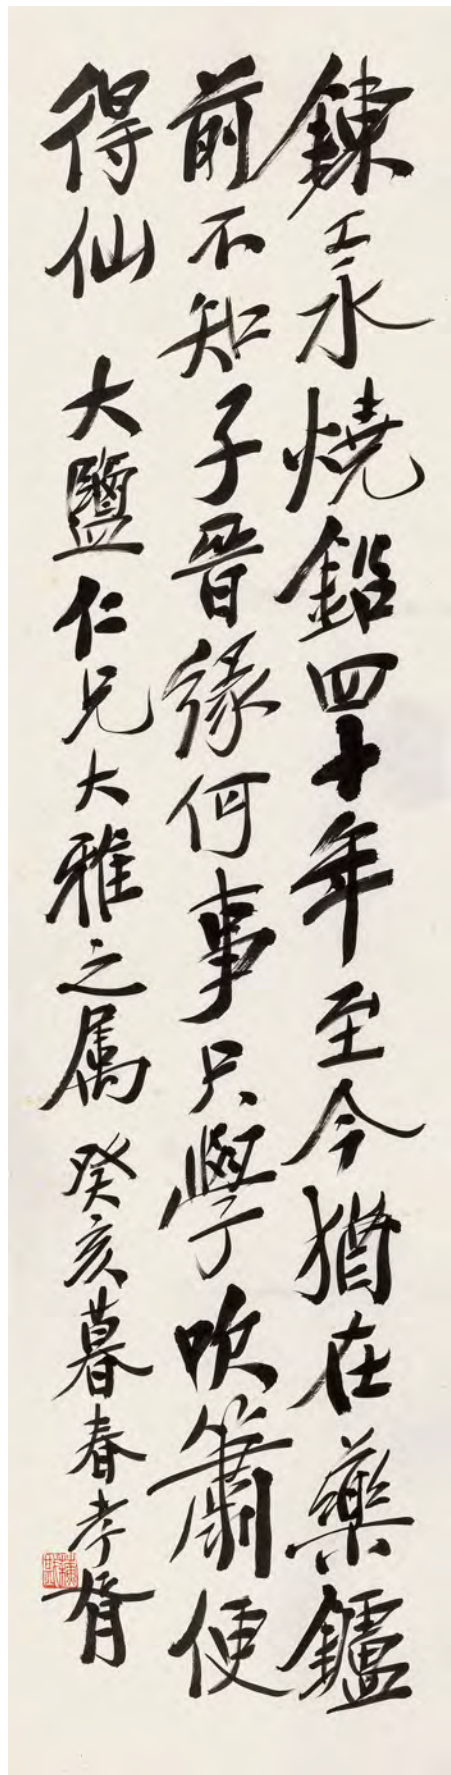 鍊汞燒鉛四十年至今猶在藥鑪
前不知子晉緣何事只學吹簫便
得仙 大鹽仁兄大雅之属 癸亥暮春孝胥